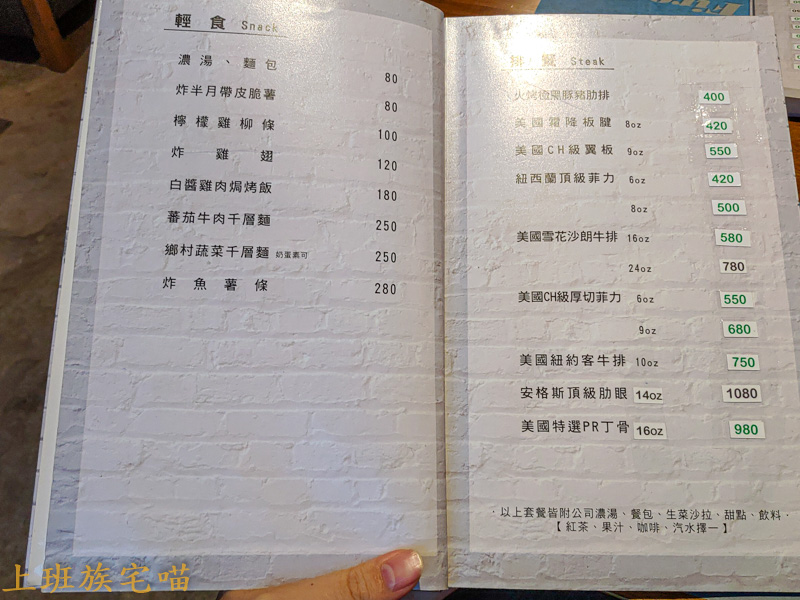 輕食 Snack
濃湯、麵包 80
炸半月帶皮脆薯 80
檸檬雞柳條 100
炸雞翅 120
白醬雞肉焗烤飯 180
蕃茄牛肉千層麵 250
鄉村蔬菜千層麵 奶蛋素可 250
炸魚薯條 280
排餐 Steak
火烤伊比利豚豬肋排 400
美國霜降板腱 8oz 420
美國CH級翼板 9oz 550
紐西蘭頂級菲力 6oz 420
8oz 500
美國雪花沙朗牛排 16oz 580
24oz 780
美國CH級厚切菲力 6oz 550
9oz 680
美國紐約客牛排 10oz 750
安格斯頂級肋眼 14oz 1080
美國特選PR丁骨 16oz 980
·以上套餐皆附公司濃湯、餐包、生菜沙拉、甜點、飲料·
【紅茶、果汁、咖啡、汽水擇一】
上班族宅喵